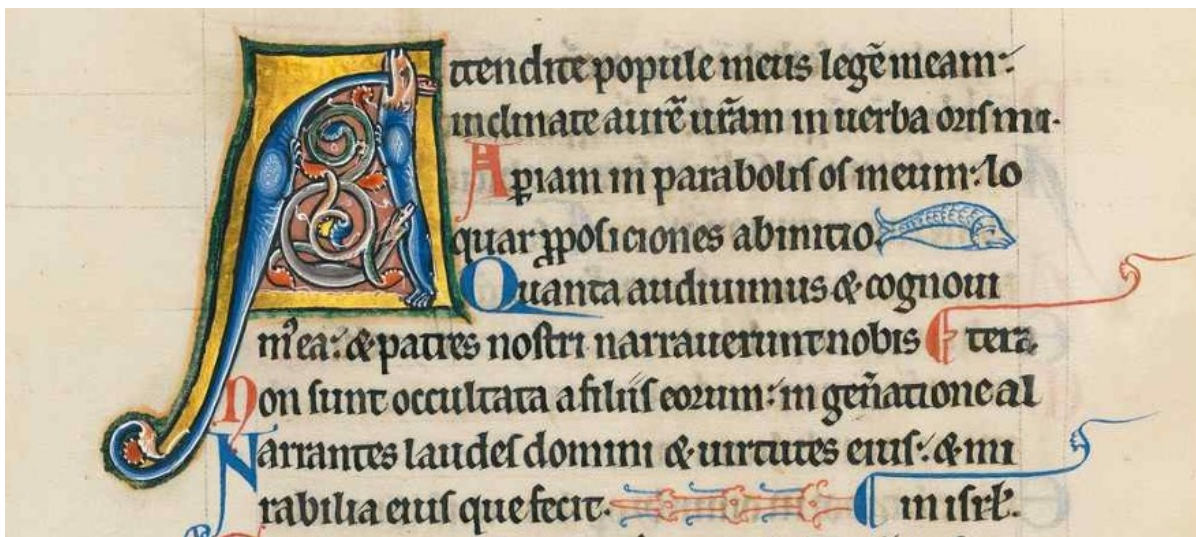 Attendite popule meus legē meam:
inclinate aurē ur̄am in uerba oris mi.
Aꝑiam in parabolis os meum: lo
quar ꝓposiciones abinitio.
Quanta audiuimus & cognoui
mꝰ ea: & patres nostri narrauerunt nobis
tera.
Non sunt occultata a filiis eorum: in gen̄atione al
Narrantes laudes domini & uirtutes eius: & mi
rabilia eius que fecit.
in isrl̄.